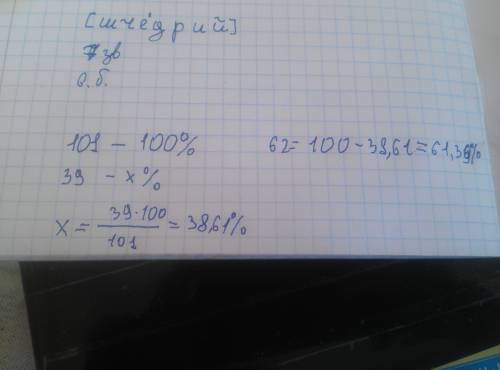 [шчéдрий]
7 зв
6.б.
101 - 100%
39 - x%
x = 39·100 / 101 = 38,61%
62 = 100 - 38,61 = 61,39%